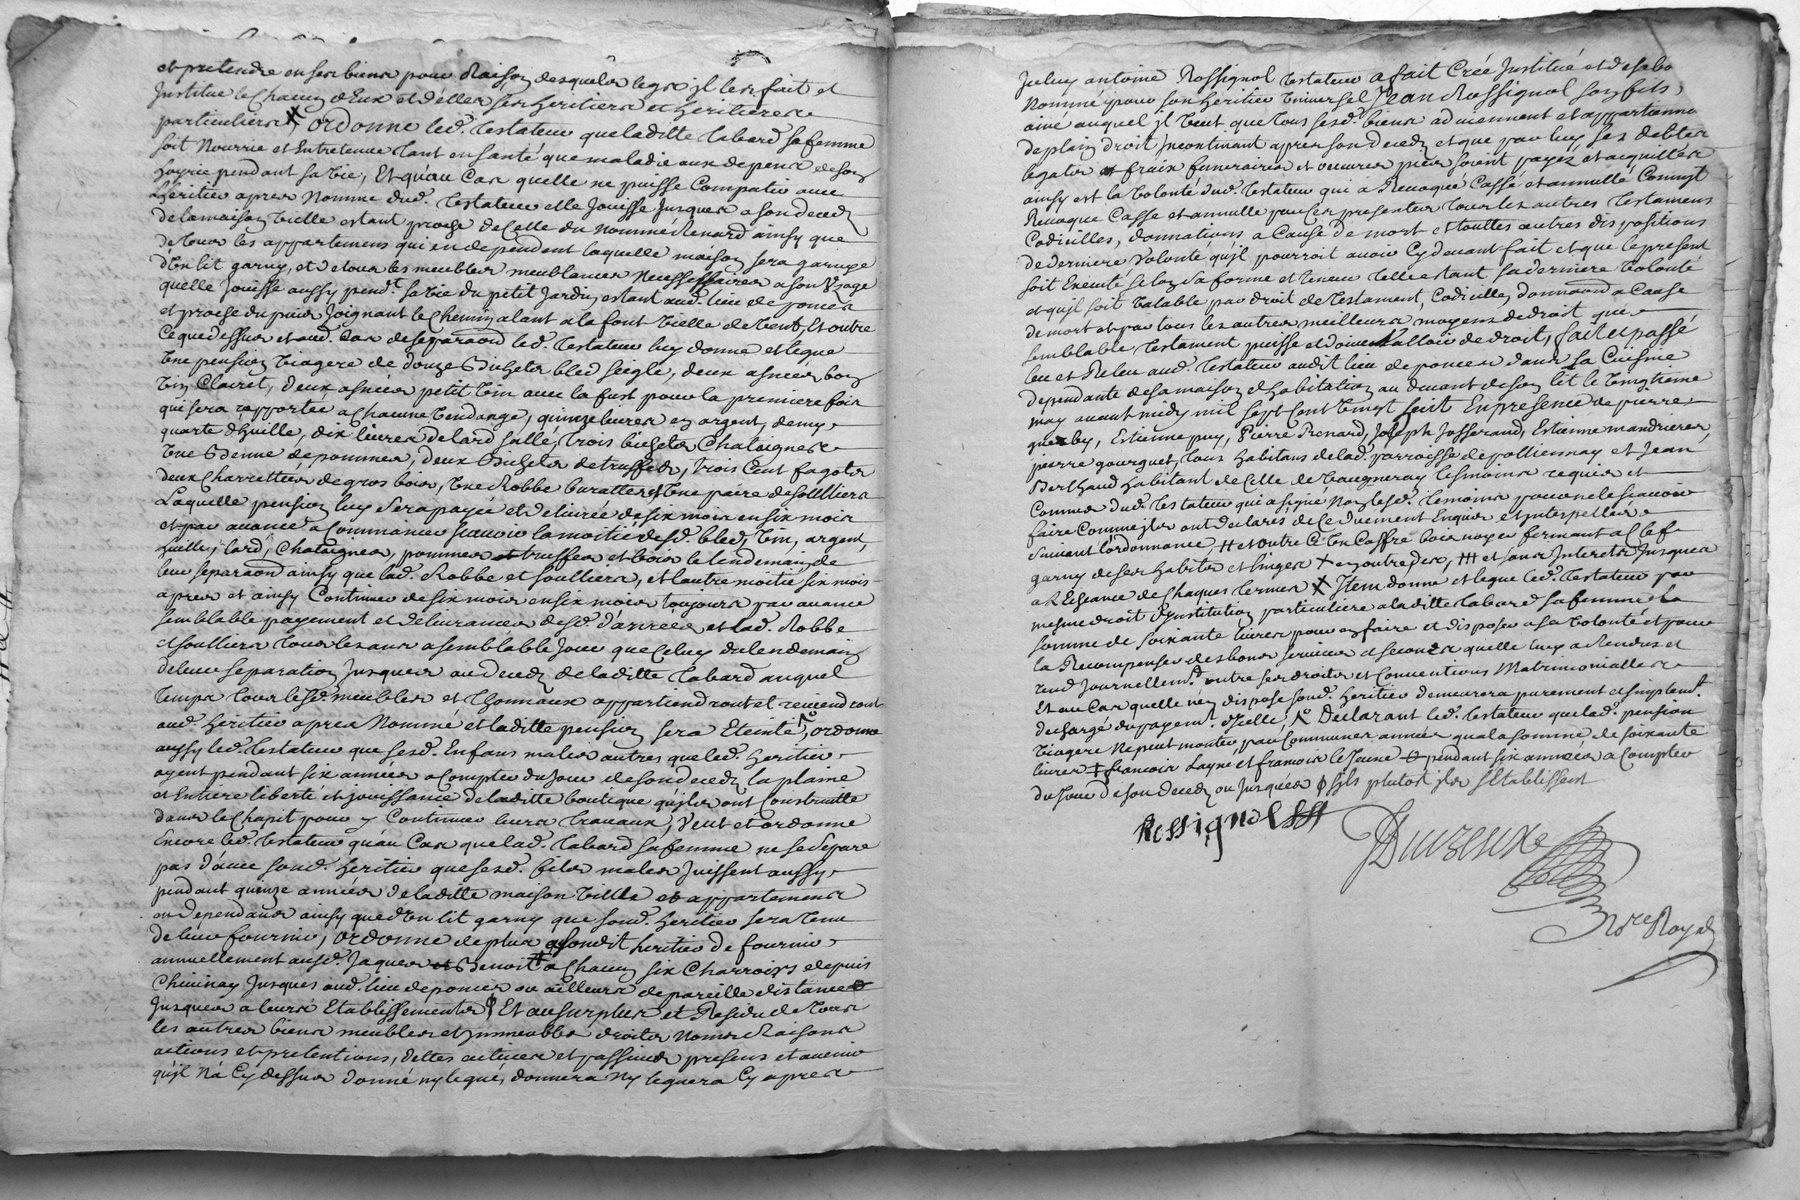 et pretendre en ses biens pour Raison desquels legs jl les fait et
Justitue le Chacun d'Eux et d'elles ses heritiers et heritieres
particuliers X ordonne led. Testateur que laditte Tabard sa femme
soit Nourrie et Entretenue Tant en santé que maladie aux depens de son
hoyrie pendant sa vie, Et qu'au Cas quelle ne puisse Compatir avec
L'heritier apres Nommé dud. Testateur elle Jouisse Jusques a son deces
de la maison vielle estant proche de Celle du Nommé Renard ainsy que
de tous les appartemens qui en dependent laquelle maison sera garnye
d'un lit garny, et de tous les meubles meublans Necessaires a son Usage
quelle Jouisse aussy pend.t sa vie du petit Jardin estant aud. lieu de
et proche du puis Joignant le Chemin alant a la font vielle de Tout, Et outre
ce que dessus et aud. Cas de separaon led. Testateur luy donne et legue
Une pension viagere de douze Bichets bled seigle, deux asnées bon
vin Clairet, deux asnées petit vin avec la fust pour la premiere fois
qui sera raportée a Chacune vendange, quinze livres en argent, demy
quarte d'huille, dix livres de lard sallé, trois bichets Chataignes
Une Benne de pommes, deux Bichets de truffes, trois Cent fagots
deux Charrettées de gros bois, Une Robbe buratte et Une paire de soulliers
Laquelle pension luy sera payée et delivrée de six mois en six mois
et par avance a Commencer scavoir la moitié desd. bled, vin, argent,
huille, lard, Chataignes, pommes et truffes et bois le lendemain de
leur separaon ainsy que lad. Robbe et soulliers, et l'autre moitié six mois
apres et ainsy Continuer de six mois en six mois toujours par avance
semblable payement et delivrance desd. danrées et lad. Robbe
et soulliers Tous les ans a semblable Jour que Celuy du lendemain
de leur separation Jusques au deces de laditte Tabard auquel
Temps Tous lesd. meubles et Thonneaux appartiendront et reviendront
aud. heritier apres Nommé et laditte pension sera Eteinte, ordonne
aussy led. Testateur que sesd. Enfans males autres que led. heritier
ayent pendant six années a Compter du Jour de son deces la plaine
et Entiere liberté et jouissance de laditte boutique qu'ils ont Construitte
dans le Chapit pour y Continuer leurs Travaux, Veut et ordonne
Encore led. Testateur qu'au Cas que lad. Tabard sa femme ne se separe
pas d'avec sond. heritier que sesd. fils males Juissent aussy
pendant quinze années de laditte maison vielle et appartemens
en dependans ainsy que d'un lit garny que sond. heritier sera Tenu
de leur fournir, ordonne de plus a sondit heritier de fournir
annuellement ausd. Jaques et Benoit # a Chacun six Charroirs depuis
Chivinay Jusques aud. lieu de ou ailleurs de pareille distance
Jusques a leurs Etablissements ϕ Et au surplus et Residu de Tous
les autres biens meubles et jmmeubles droits Noms Raisons
actions et pretentions, dettes actives et passives presens et avenir
qu'jl N'a Cy dessus donné ny legué, donnera Ny leguera Cy apres
Jceluy antoine Rossignol Testateur a fait Créé Justitué et de sa bo
Nommé pour son heritier Universel Jean Rossignol son fils
ainé auquel jl Veut que Tous sesd. biens adviennent et appartienne
de plain droit jncontinant apres son deces et que par luy ses debtes
legats et fraix funeraires et oeuvres pies soient payés et acquittés
ainsy est la Volonté dud. Testateur qui a Revoqué Cassé et annullé Comme jl
Revoque Casse et annulle par ces presentes Tous les autres Testamens
Codicilles, donnations a Cause de mort et touttes autres dispositions
de derniere Volonté qu'jl pourroit avoir Cy devant fait et que le present
soit Executé selon sa forme et teneur Telle estant sa derniere Volonté
et qu'jl soit Valable par droit de Testament, Codicille, donnaon a Cause
de mort et par tous les autres meilleurs moyens de droit que
semblable Testament puisse et doive Valloir de droit, fait et passé
leu et Releu aud. Testateur audit lieu de dans La Cuisine
dependante de sa maison d'habitation au devant de son lit le Vingtieme
may avant midy mil sept Cent Vingt sept En presence de pierre
Estienne puy, Pierre Renard, Joseph Josserand, Estienne mandrieres
pierre gourguet, tous habitans de lad. parroisse de pollionnay et Jean
Berthaud habitant de Celle de Vaugneray tesmoins requis et
Connus dud. Testateur qui a signé Non lesd. temoins pour ne le scavoir
faire Comme jls ont declarés de Ce duement Enquis et jnterpellés
suivant l'ordonnance, # et outre Ce Un Coffre bois noyer fermant a Clef
garny de ses habits et linges + en outre dix, ### et sans Interets Jusques
a l'Echeance de Chaques termes X Jtem donne et legue led. Testateur par
mesme droit d'Jnstitution particuliere a laditte Tabard sa femme La
somme de soixante livres pour en faire et disposer a sa Volonté et pour
la Recompenser des bons services et secours quelle luy a Rendus et
rend Journellem.t outre ses droits et Conventions Matrimonialles
Et au Cas quelle n'en dispose sond. heritier demeurera purement et simplem.t
dechargé du payem.t d'jcelle, Declarant led. Testateur que lad. pension
Viagere Ne peut monter par Communes années qu'a la somme de soixante
livres ‡ francois Layné et francois le Jeune ⊕ pendant six années a Compter
du Jour de son deces ou jusques ϕ s'jls plutost jls s'Etablissent
Rossignol
Duvzeux
N.re Royal